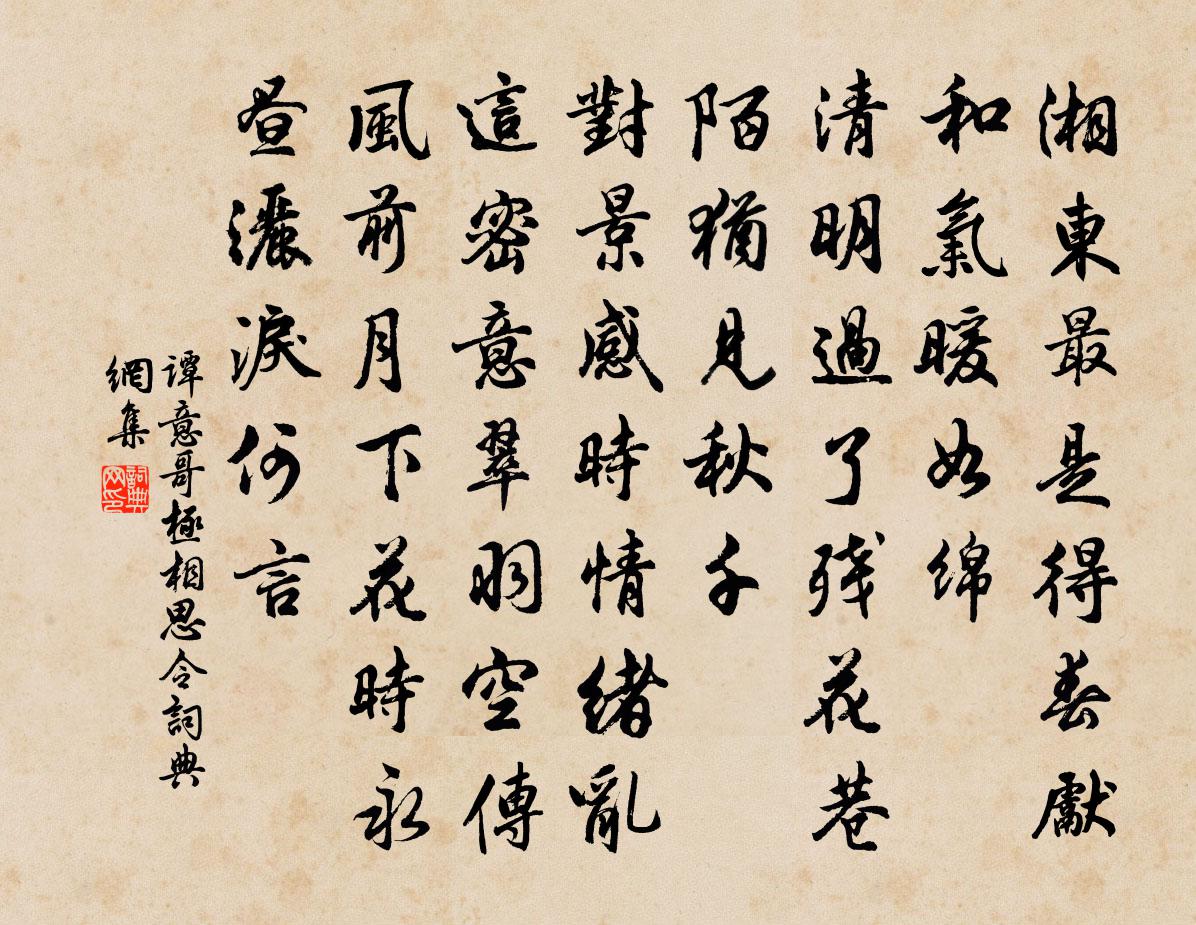 湘東最是得春獻
和氣暖如綿
清明過了殘花巷
陌猶見秋千
對景感時情緒亂
這密意翠羽空傳
風前月下花時永
晝灑淚何言
譚意哥極相思令詞典
網集
詞典網印